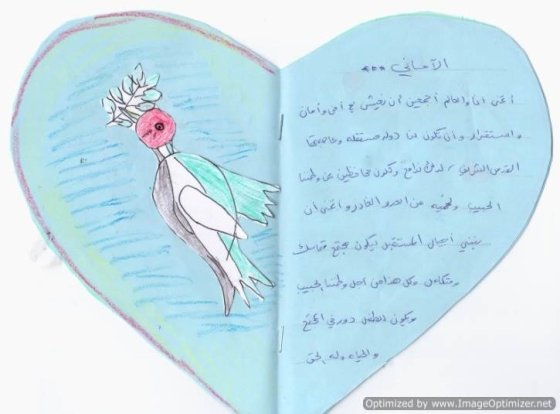 الأماني ***
أتمنى أنا والعالم أجمعين أن نعيش في أمن وأمان
واستقرار وأن تكون لنا دولة مستقلة وعاصمتها
القدس الشريف ونكون محافظين عن وطننا
الحبيب ونحميه من العدو الغادر وأتمنى أن
يبني أجيال المستقبل ليكون مجتمع متماسك
ومتكامل وكل هذا من أجل وطننا الحبيب
ويكون للطفل دور في المجتمع
والحياة وله الحق
Optimized by www.ImageOptimizer.net